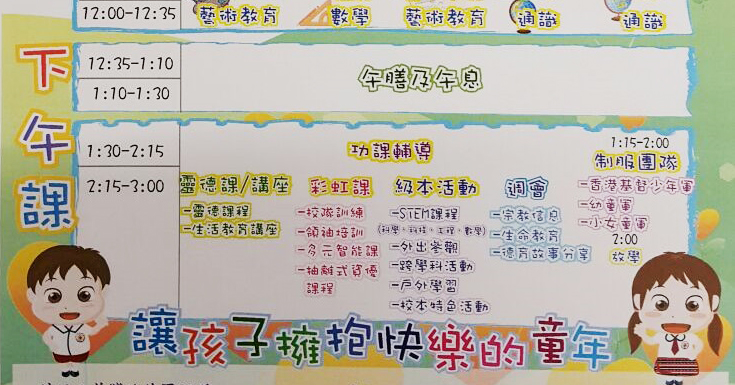 12:00-12:35 藝術教育 數學 藝術教育 通識 通識
下午課
12:35-1:10
1:10-1:30
午膳及午息
1:30-2:15
功課輔導
2:15-3:00
靈德課/講座
-靈德課程
-生活教育講座
彩虹課
-校隊訓練
-領袖培訓
-多元智能課
-抽離式資優
課程
級本活動
-STEM課程
(科學、科技、工程、數學)
-外出參觀
-跨學科活動
-戶外學習
-校本特色活動
週會
-宗教信息
-生命教育
-德育故事分享
1:15-2:00
制服團隊
-香港基督少年軍
-幼童軍
-小女童軍
2:00
放學
讓孩子擁抱快樂的童年